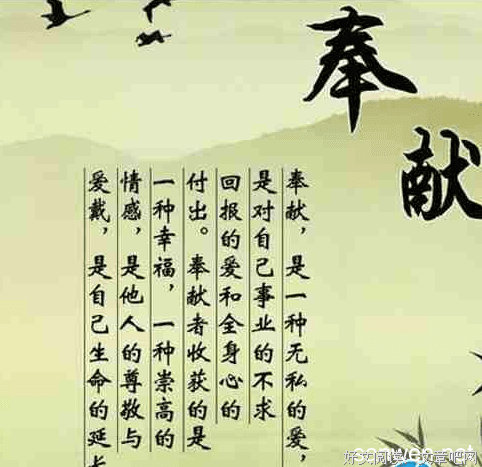 奉献
奉献，是一种无私的爱，
是对自己事业的不求
回报的爱和全身心的
付出。奉献者收获的是
一种幸福，一种崇高的
情感，是他人的尊敬与
爱戴，是自己生命的延